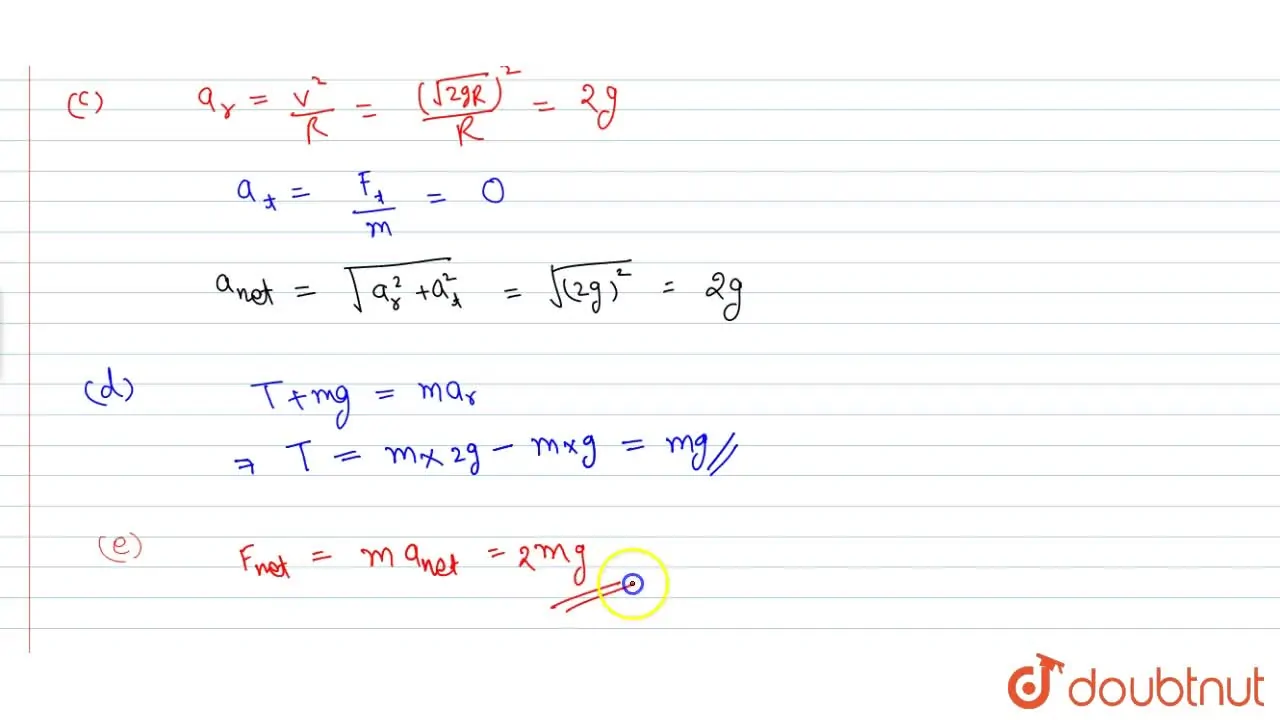 (c) aᵣ = v²/R = (√2gR)²/R = 2g
aₜ = Fₜ/m = 0
aₙₑₜ = √aᵣ² + aₜ² = √(2g)² = 2g
(d) T + mg = maᵣ
⇒ T = m × 2g − m × g = mg //
(e) Fₙₑₜ = m aₙₑₜ = 2mg
doubtnut